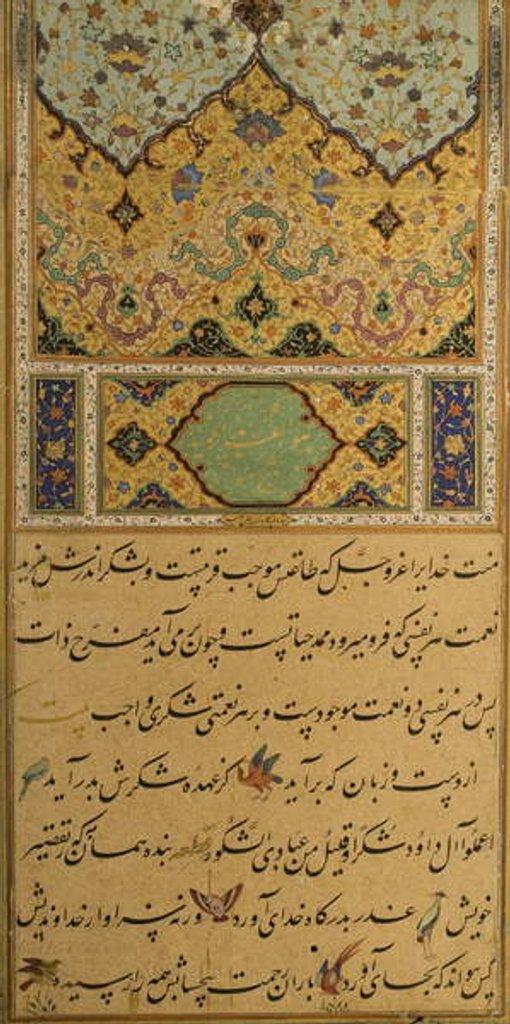 منت خدایرا عز و جل که طاعتش موجب قربتست و بشکر اندرش مزید
نعمت هر نفسی که فرو میرود ممد حیاتست و چون بر می آید مفرح ذات
پس در هر نفسی دو نعمت موجودست و بر هر نعمتی شکری واجب بیت
از دست و زبان که برآید کز عهده شکرش بدر آید
اعملوا آل داود شکرا و قلیل من عبادی الشکور قطعه بنده همان به که ز تقصیر
خویش عذر بدرگاه خدای آورد ورنه سزاوار خداوندیش
کس نتواند که بجای آورد باران رحمت بیحسابش همه را رسیده